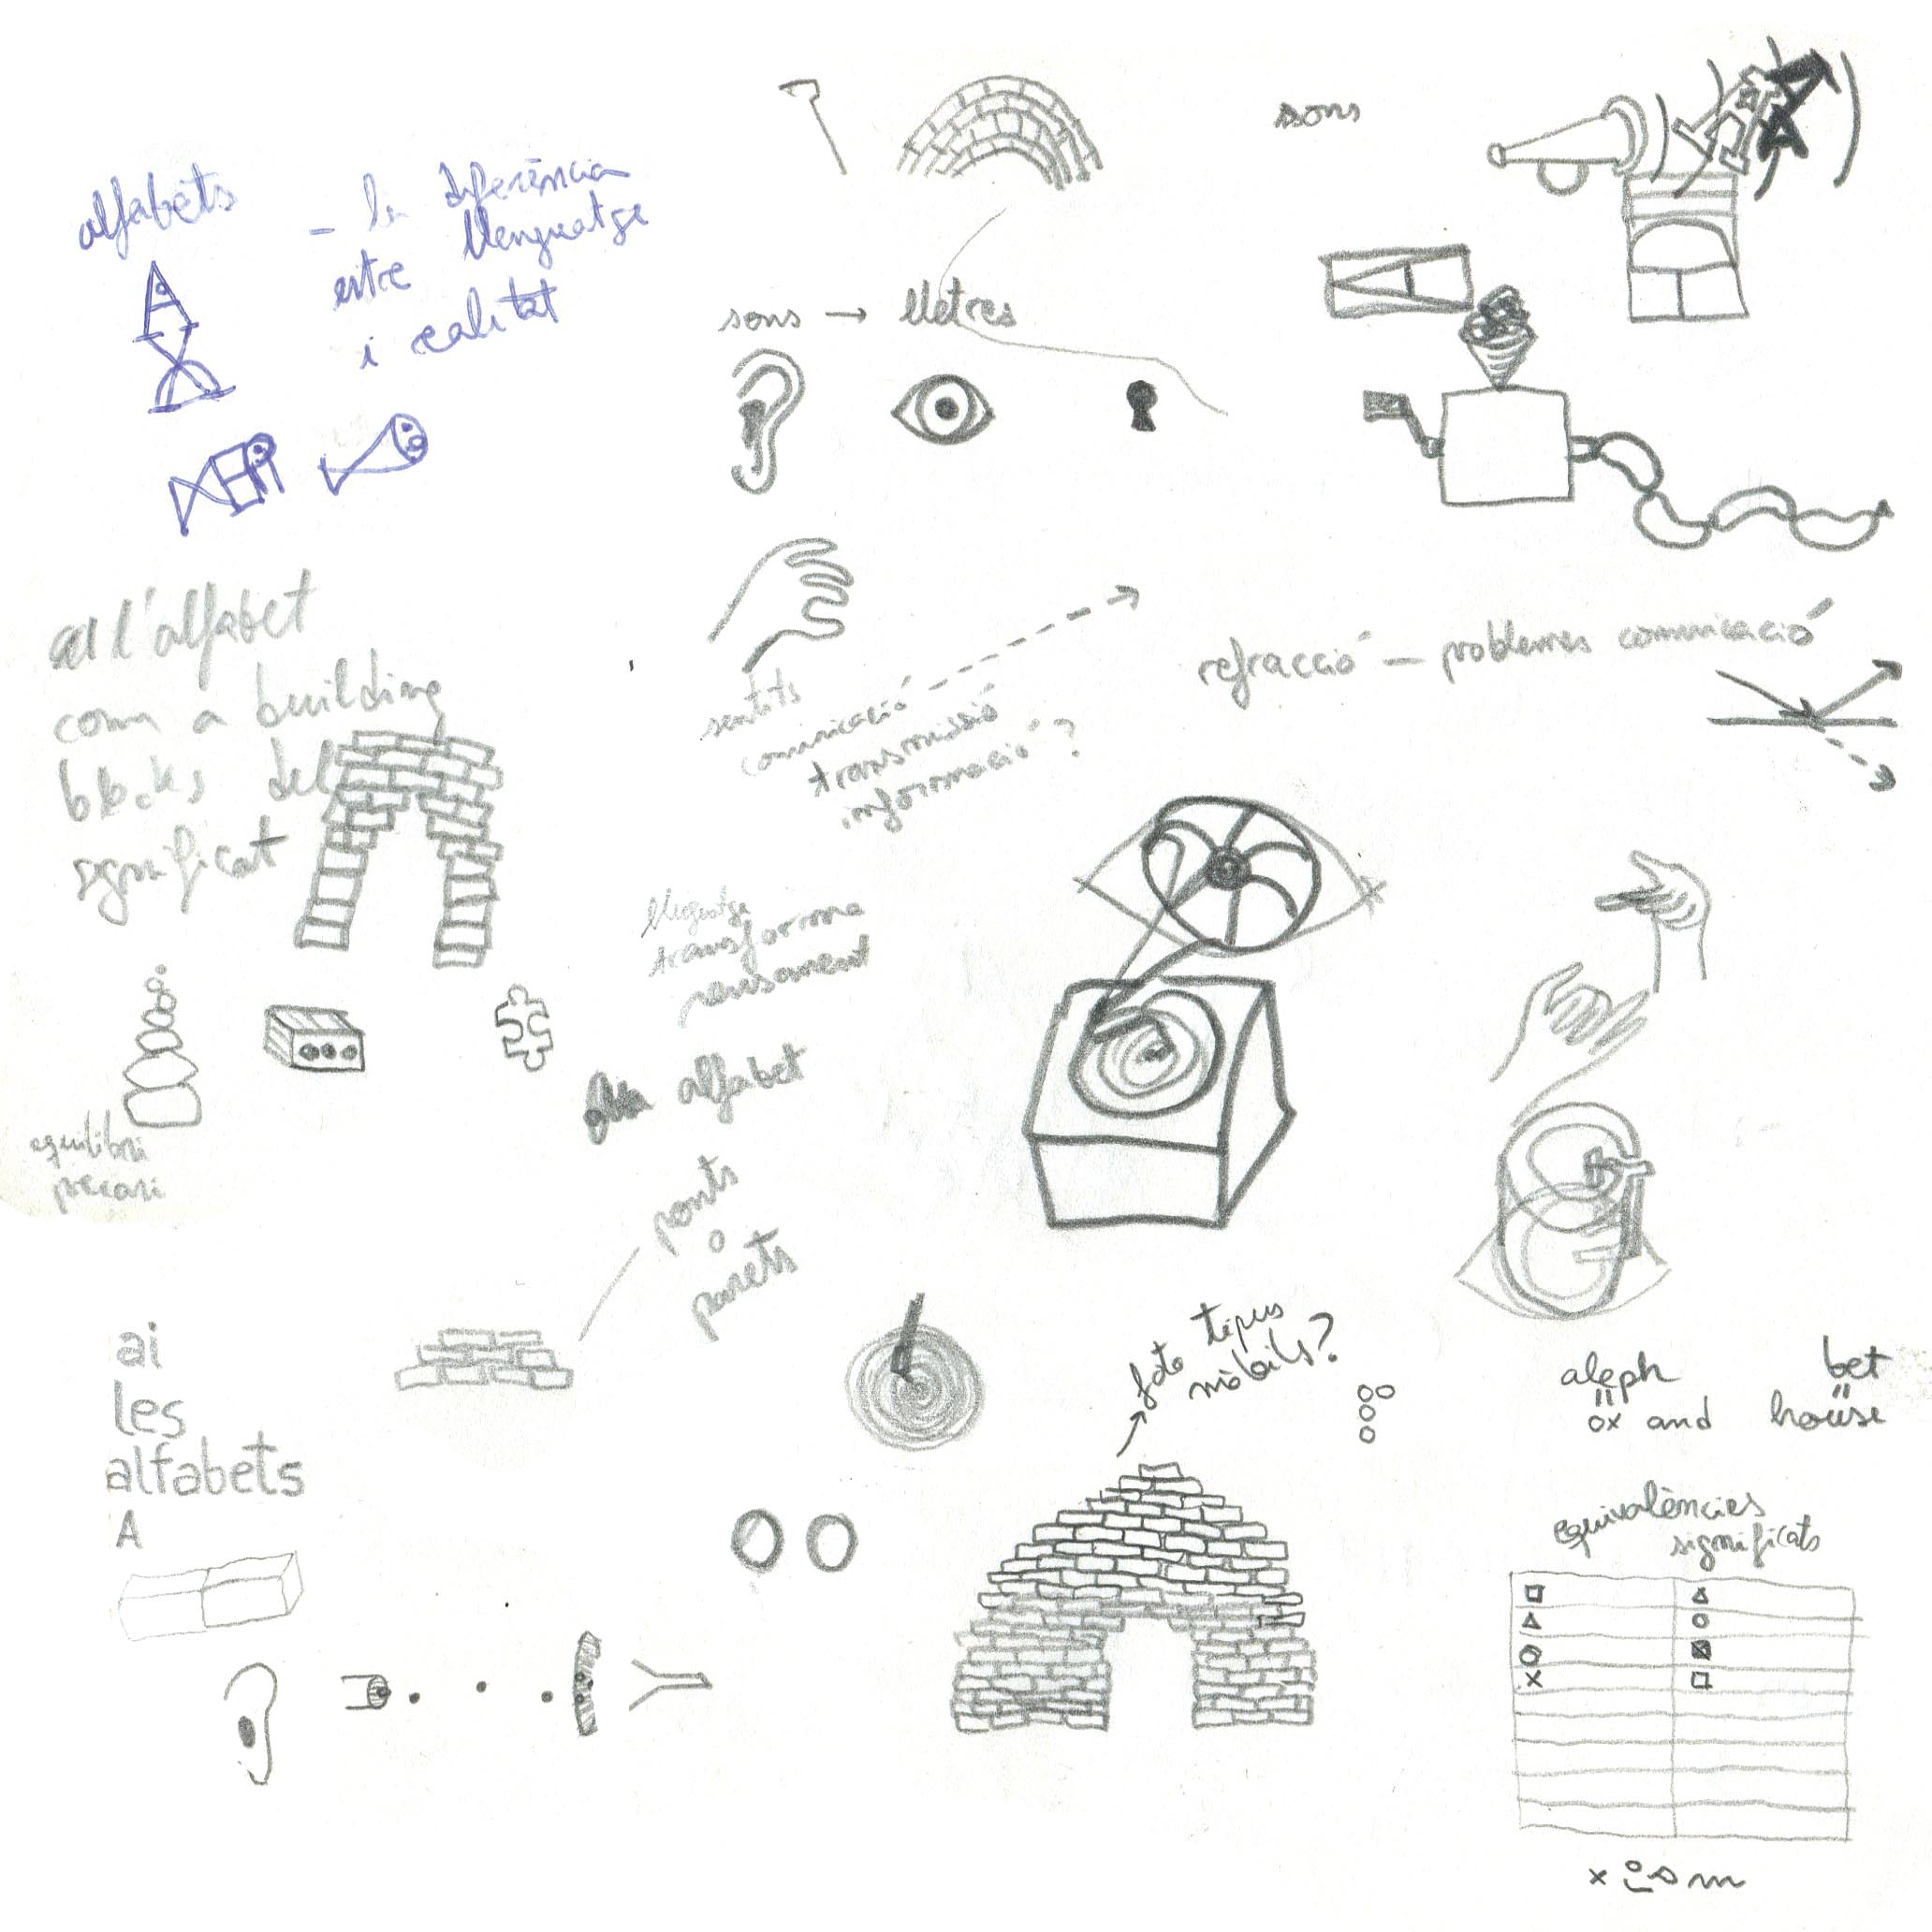 sons
alfabets
– la diferència
entre llenguatge
i realitat
sons → lletres
l'alfabet
com a building
blocks del
significat
sentits
comunicació
transmissió
informació?
refracció – problemes comunicació
llenguatge
transforma
pensament
alfabet
equilibri
precari
ponts
o
parets
ai
les
alfabets
A
foto tipus
mòbils?
aleph bet
" "
ox and house
equivalències
significats